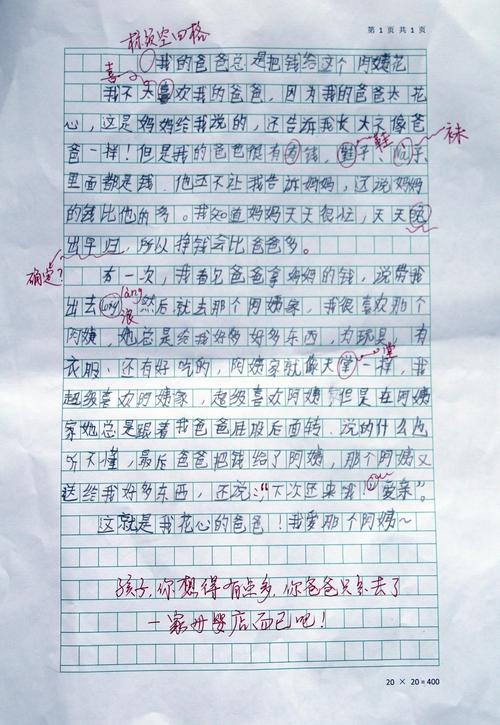 第 1 页 共 1 页
标题空四格
我的爸爸总是把钱给这个阿姨花
喜
我不太喜欢我的爸爸，因为我的爸爸太花
心，这是妈妈给我说的，还告诉我长大不像爸
爸一样！但是我的爸爸很有钱，鞋子、子
鞋
袜
里面都是钱，他还不让我告诉妈妈，还说妈妈
的钱比他的多。我知道妈妈天天很忙，天天
出早归，所以挣钱会比爸爸多。
确定？
有一次，我看见爸爸拿妈妈的钱，说带我
出去lang然后就去那个阿姨家，我很喜欢那个
làng
浪
阿姨，她总是给我好多好多东西，有玩具，有
衣服、还有好吃的，阿姨家就像天一样，我
堂
超级喜欢阿姨家，超级喜欢阿姨，但是在阿姨
家她总是跟着我爸爸屁股后面转，说的什么也
听不懂，最后爸爸把钱给了阿姨，那个阿姨又
送给我好多东西，还说：“下次还来哦！爱亲”。
这就是我花心的爸爸！我爱那个阿姨~
孩子，你想得有点多，你爸爸只是去了
一家母婴店而已吧！
20 × 20 = 400